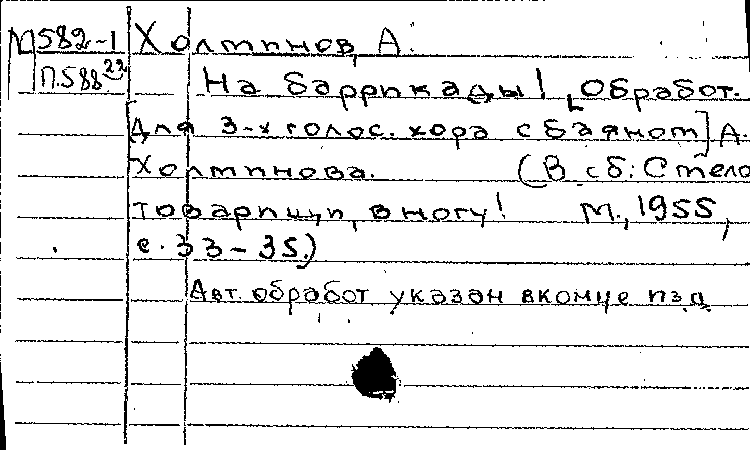 М582-1 Холминов, А.
П.588²² На баррикады! [Обработ.
для 3-х голос. хора с баяном] А.
Холминова. (В сб: Смело
товарищи, в ногу! М., 1955,
с. 33-35.)
Авт. обработ указан в конце изд